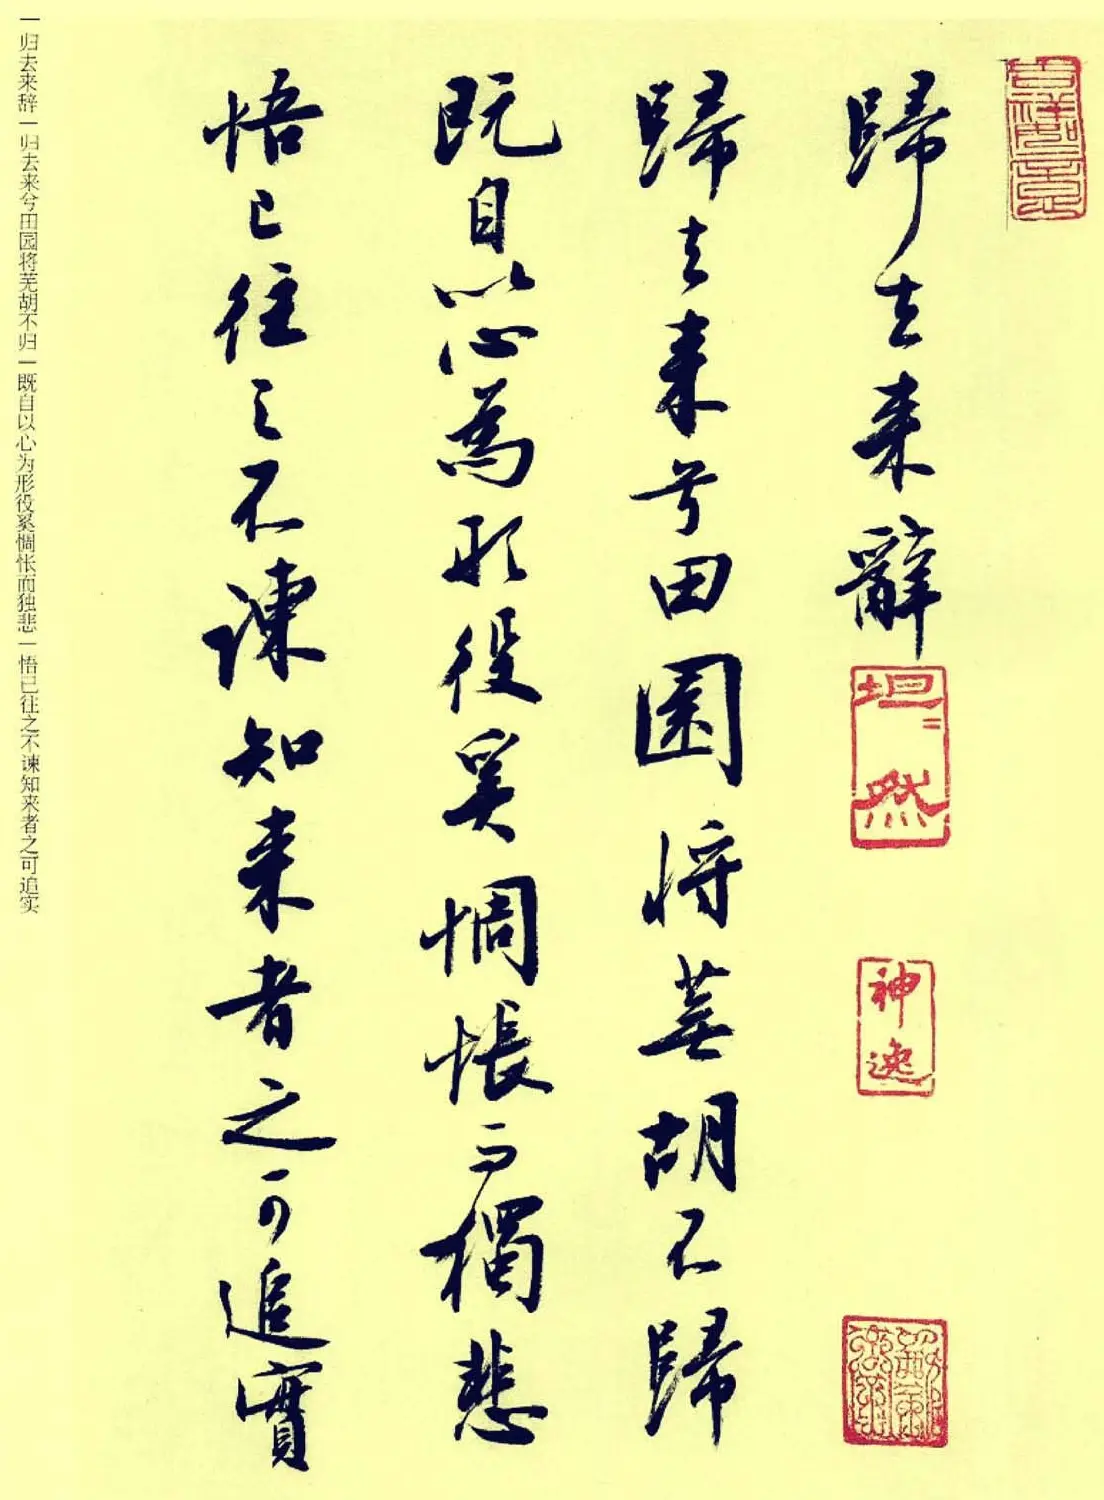 歸去来辭
歸去来兮田園将蕪胡不歸
既自以心為形役奚惆悵而獨悲
悟已往之不諫知来者之可追實
坦然
神逸
一归去来辞一归去来兮田园将芜胡不归一既自以心为形役奚惆怅而独悲一悟已往之不谏知来者之可追实